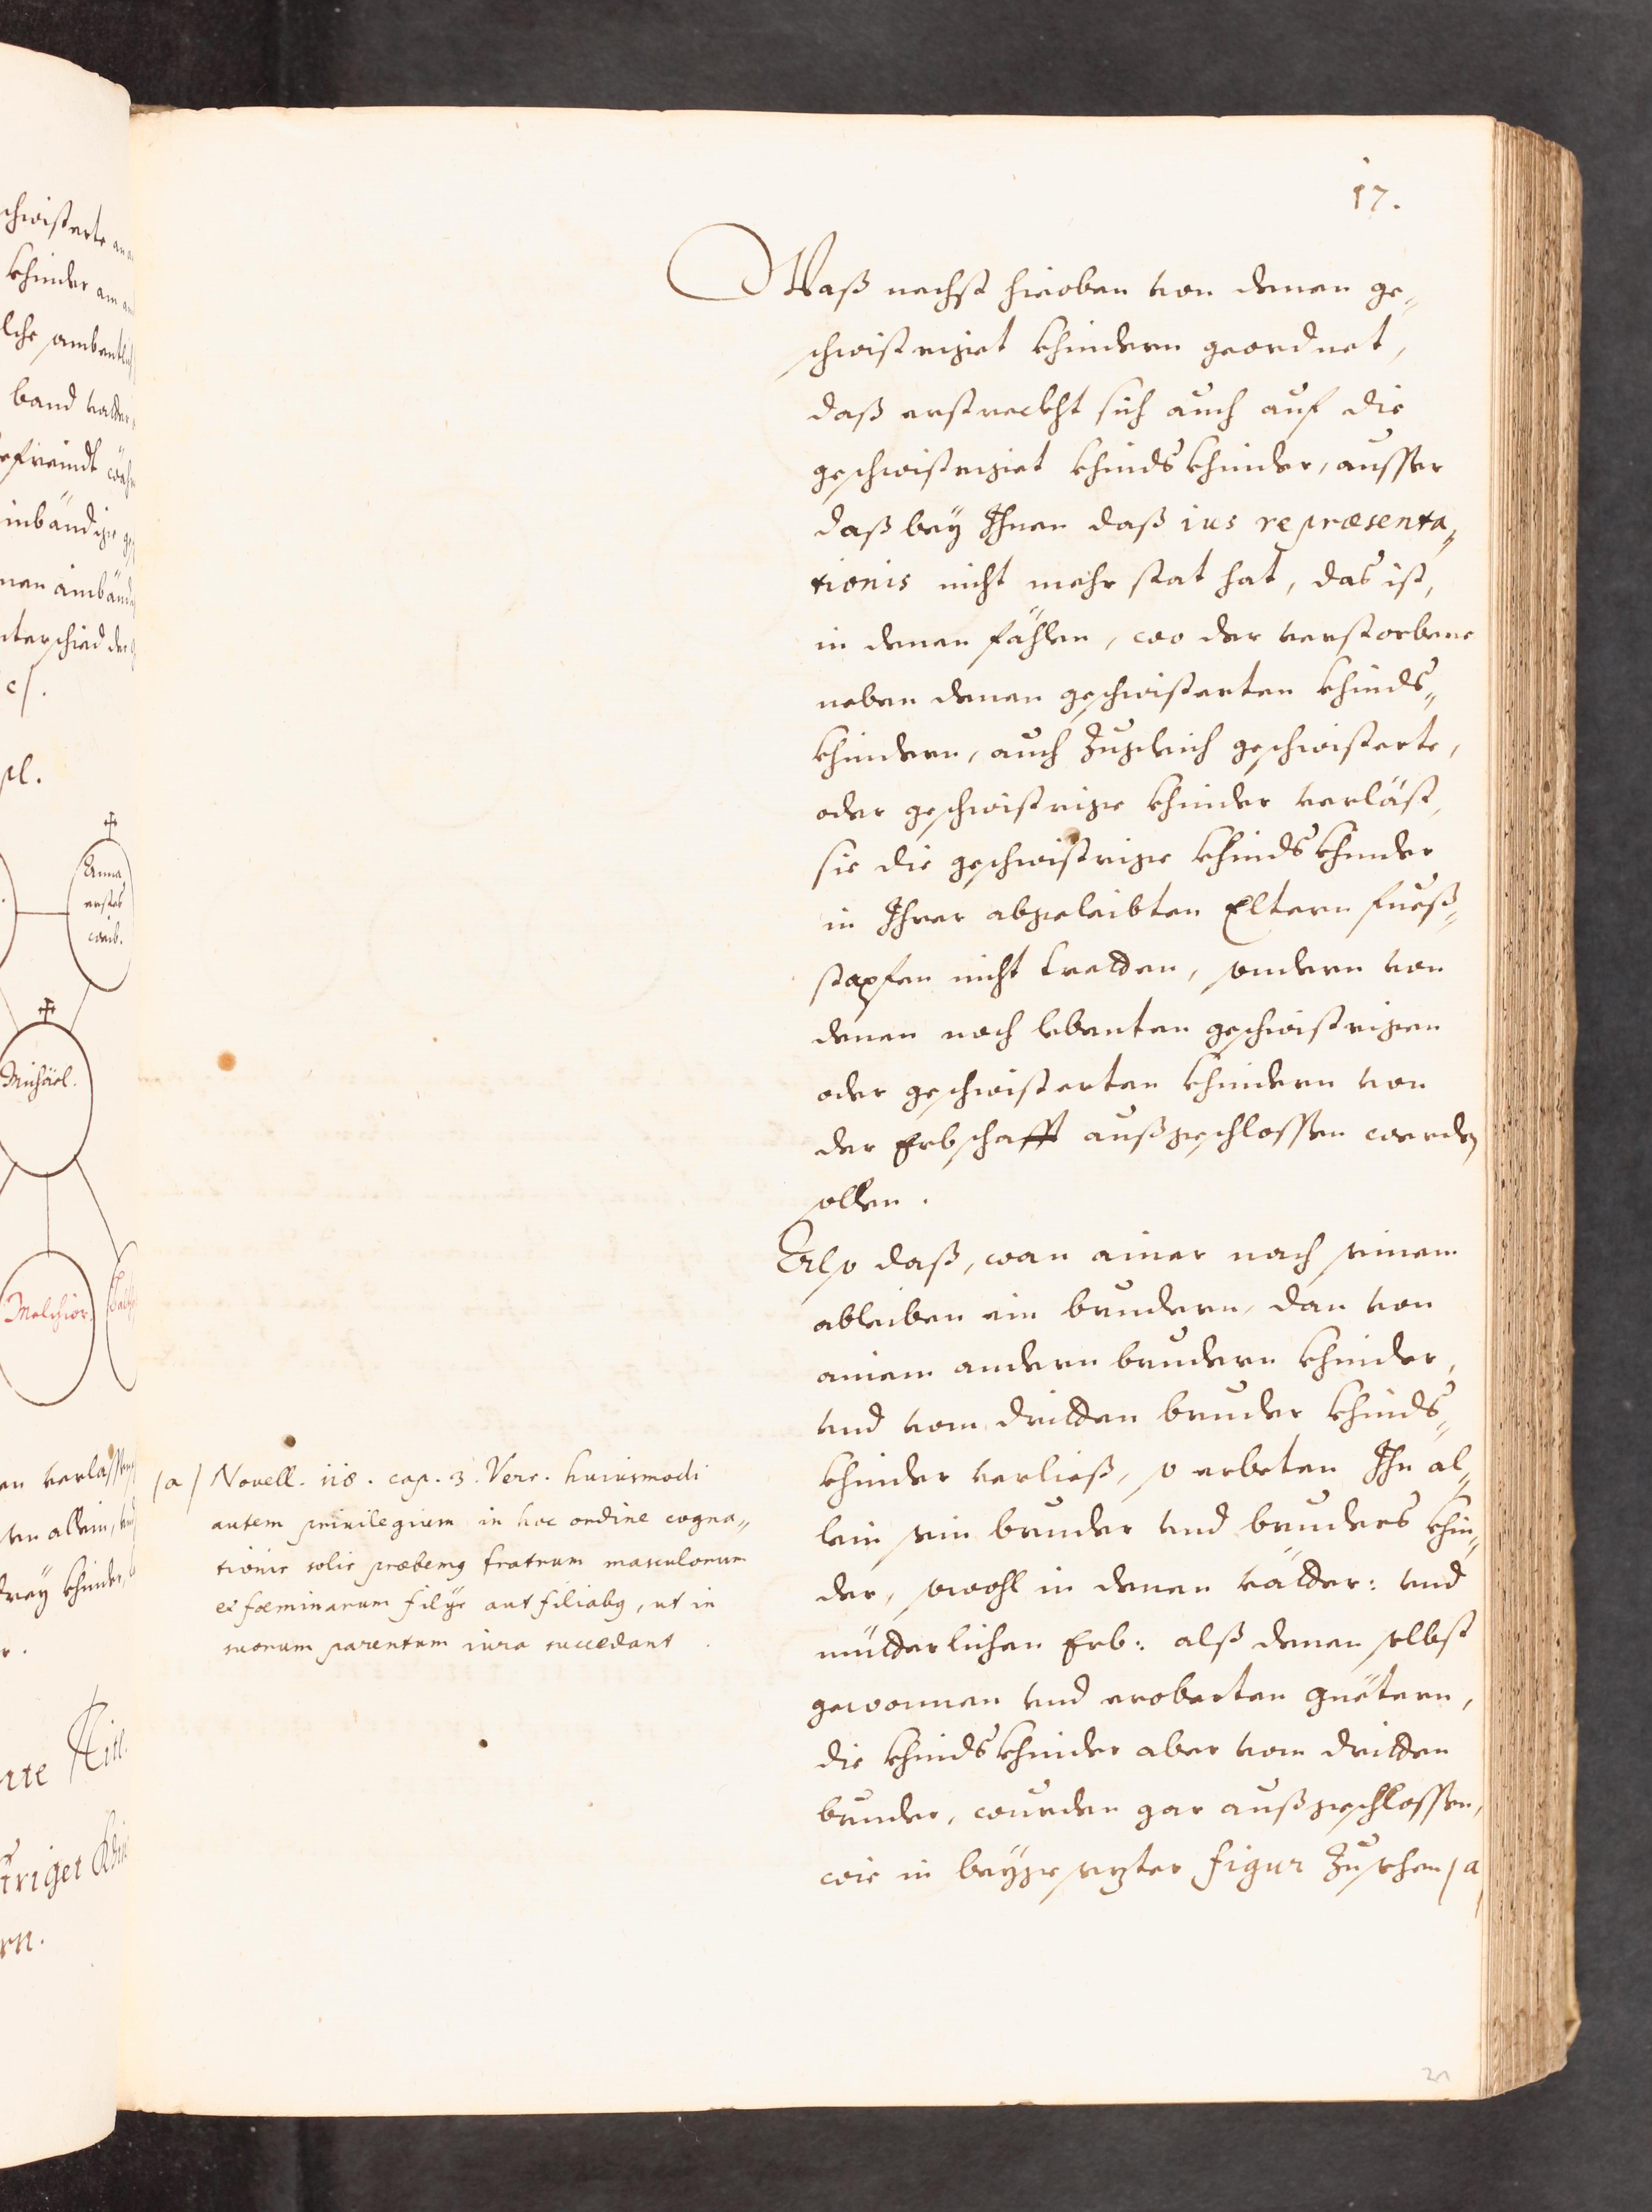 17.
Waß nechst hieoben von denen ge„
schwistriget khindern geordnet,
daß erstreckht sich auch auf die
geschwistriget khindskhinder, ausser
daß bey Ihnen daß ius repræsenta„
tionis nicht mehr stat hat, das ist,
in denen fählen, wo der verstorbene
neben denen geschwisterten khinds„
khindern, auch zugleich geschwisterte,
oder geschwistrige khinder verläst,
sie die geschwistrige khindskhinder
in Ihrer abgeleibten Eltern fueß„
stapfen nicht tretten, sondern von
denen noch lebenten geschwistrigen
oder geschwisterten khindern von
der Erbschafft außgeschlossen werden
sollen.
Also daß, wan ainer nach seinem
ableiben ein brudern, dan von
ainem andern brudern khinder,
und vom dritten bruder khinds„
khinder verließ, so erbeten Ihn al„
lein sein bruder und bruders khin„
der, sowohl in denen vätter: und
mütterlichen Erb: alß denen selbst
gewonnen und eroberten guëtern,
die khindskhinder aber vom dritten
bruder, wurden gar außgeschlossen,
wie in beygesezter figur zusehen /a
/a/ Novell. 118. cap. 3. Vers. huiusmodi
autem privilegium in hoc ordine cogna„
tionis solis præbemus fratrum masculorum
et fœminarum filÿs aut filiabus, ut in
suorum parentum iura succedant.
schwisterte
khinder
band
pl.
Anna
erstes
weib.
Michäel.
Melchior.
en verlassen
allein,
drey khinder,
rn.